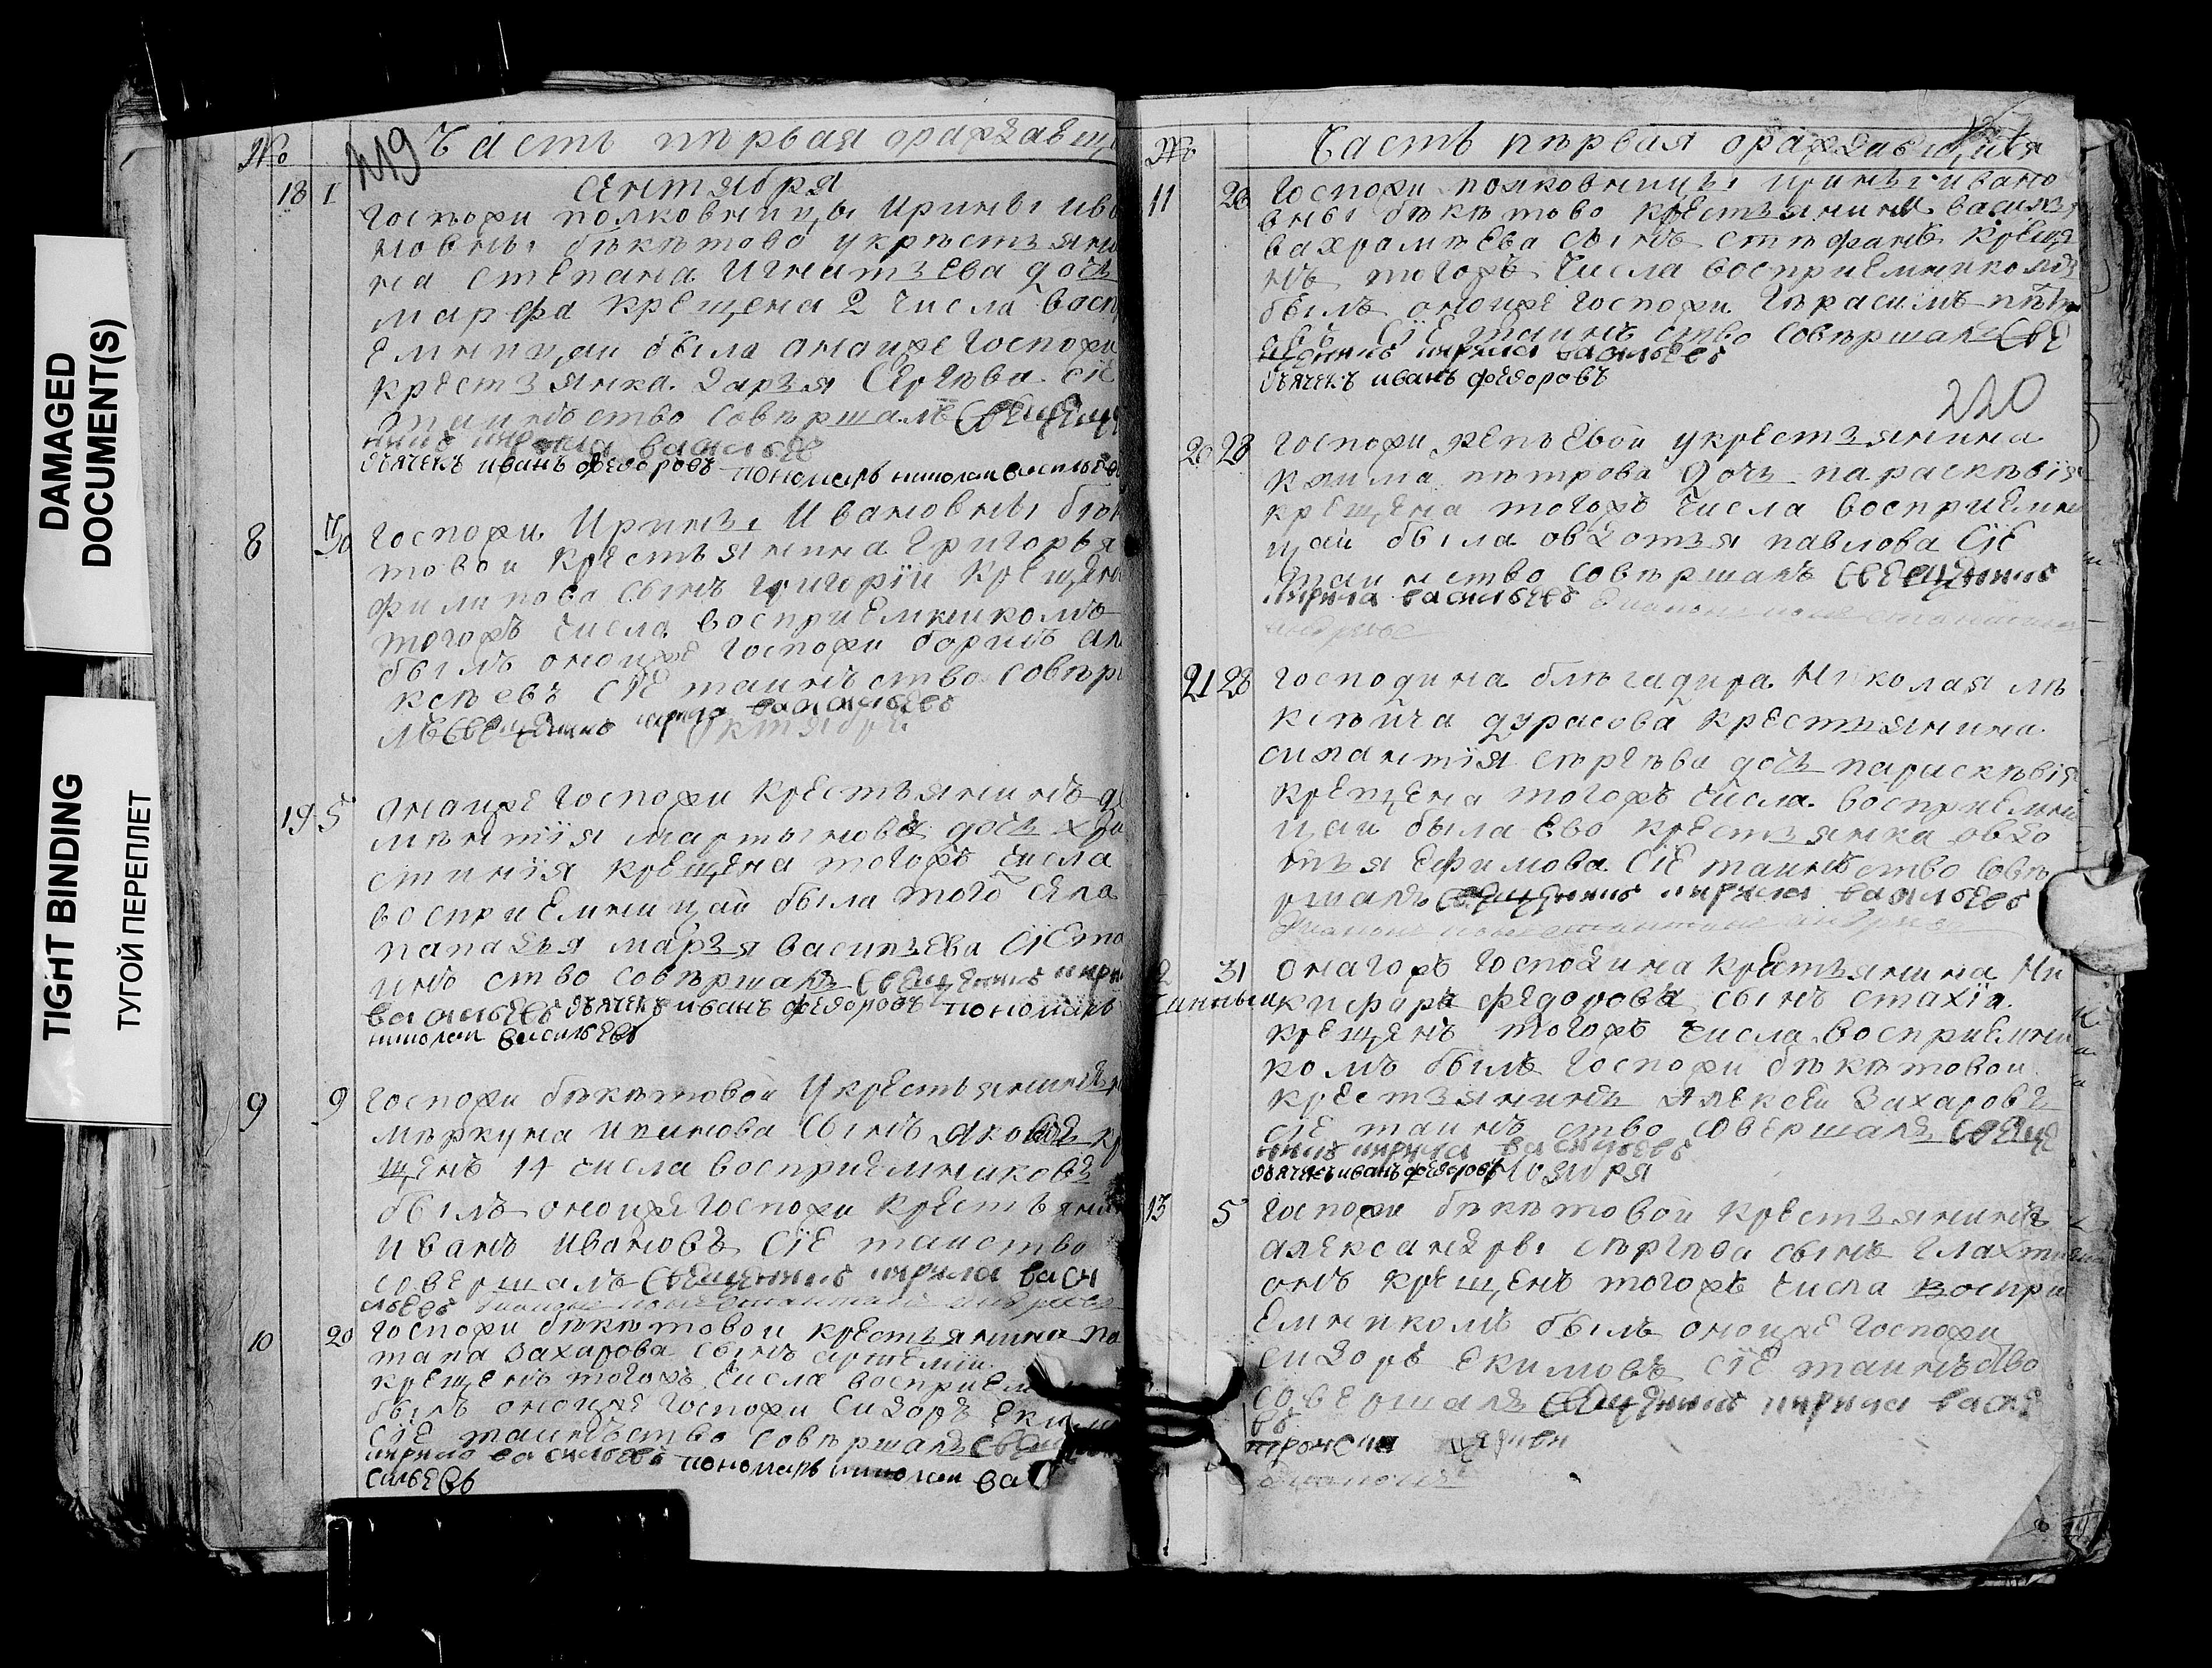 DAMAGED
DOCUMENT(S)
TIGHT BINDING
ТУГОЙ ПЕРЕПЛЕТ
№
419 Часть пѣрвая ораждавщ
сентября
18 1 Госпожи полковницы Ирины Ива
новны бѣкѣтово укрѣстьяни
на степана Игнатьева дочь
марфа крещена 2 числа восп
емницаи была онаиже Госпожи
крестьянка дарья Сергѣва сіе
таинъство совѣршалъ свещен
никъ кирила васильев
дьячекъ иванъ федоровъ пономарь николаи василье
8 30 Госпожи Ирины Ивановны бѣкѣ
товои крестьянина Григорья
филипова сынъ григории крещен
тогожъ числа восприемникомъ
былъ онаиже Госпожи борисъ але
ксѣевъ сіе таинъство совѣрш
лъ свещенникъ кирила васильевъ
октября
19 5 онаиже Госпожи крестьянинъ де
мѣнтія мартынова дочь хри
стинія крещена тогожъ числа
восприемницаи была того села
пападья марья васильева сіе та
инъство совѣршалъ свещенникъ кири
васильевъ дьячекъ иванъ федоровъ пономарь
николаи василевъ
9 9 Госпожи бѣкѣтовой укрестьянина
мѣркула сынъ яковъ кр
щенъ 14 числа восприемниковъ
былъ онаиже госпожи крестьянин
иванъ ивановъ сіе таинство
совершалъ свещенникъ кирила васи
льевъ
10 20 Госпожи бѣкѣтовои крестьянина по
тапа Захарова сынъ артемии
крещенъ тогожъ числа восприем
былъ онаиже Госпожи Сидоръ Еким
сіе таинъство совѣршалъ свещ
кирило васильевъ пономарь николаи ва
сильевъ
№
Часть пѣрвая ораждавщихся
11 26 Госпожи полковницы ирины ивано
вны бѣкѣтово крестьянина васил
вахрамѣева сынъ стѣфанъ креще
нъ тогожъ числа восприемникомъ
былъ онаиже госпожи Гѣрасимъ пѣтр
овъ сіе таинъство совѣршалъ све
щенникъ кирила васильев
дьячекъ иванъ федоровъ
220
20 28 Госпожи репьевои укрестьянина
клима пѣтрова дочь параскѣвія
крещена тогожъ числа восприемни
цаи была овдотья павлова Сіе
таинство совѣршалъ свещенникъ
кирила васильевъ
21 28 Господина бригадира Николая лѣ
ксѣича дурасова крестьянина
силантія сѣргѣва дочь параскѣвія
крещена тогожъ числа восприемни
цаи была ево крестьянка овдо
тья Ефимова Сіе таинъство совѣ
ршалъ свещенникъ кирила васильевъ
12 31 онагожъ Господина крестьянина Ни
кифара федорова сынъ стахіи
крещенъ тогожъ числа восприемни
комъ былъ Госпожи бѣкѣтовои
крестьянинъ Алексеи Захаровъ
сіе таинъство совершалъ свеще
никъ кирила васильевъ
дьячекъ иванъ федоровъ Ноября
13 5 Госпожи бѣкѣтовой крестьянина
александры сѣргѣва сынъ Галахти
онъ крещенъ тогожъ числа воспри
емникомъ былъ онаиже Госпожи
сидоръ екимовъ сіе таинъство
совершалъ свещенникъ кирила василе
въ